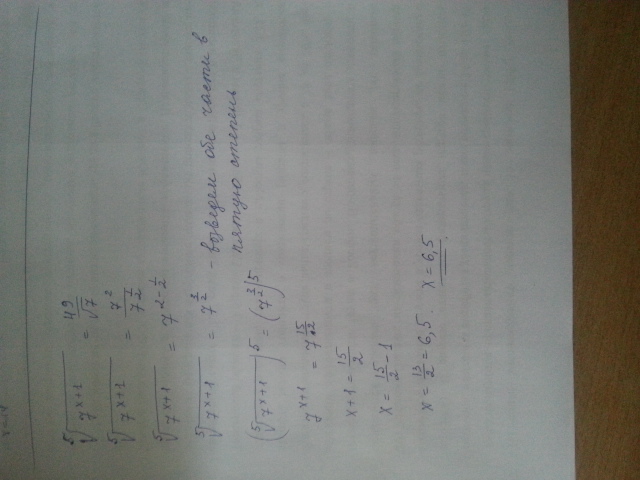 ⁵√(7ˣ⁺¹) = 49/√7
⁵√(7ˣ⁺¹) = 7²/7^(1/2)
⁵√(7ˣ⁺¹) = 7^(2-1/2)
⁵√(7ˣ⁺¹) = 7^(3/2) - возведем обе части в
пятую степень
(⁵√(7ˣ⁺¹))⁵ = (7^(3/2))⁵
7ˣ⁺¹ = 7^(15/2)
x+1 = 15/2
x = 15/2 - 1
x = 13/2 = 6,5. x = 6,5.